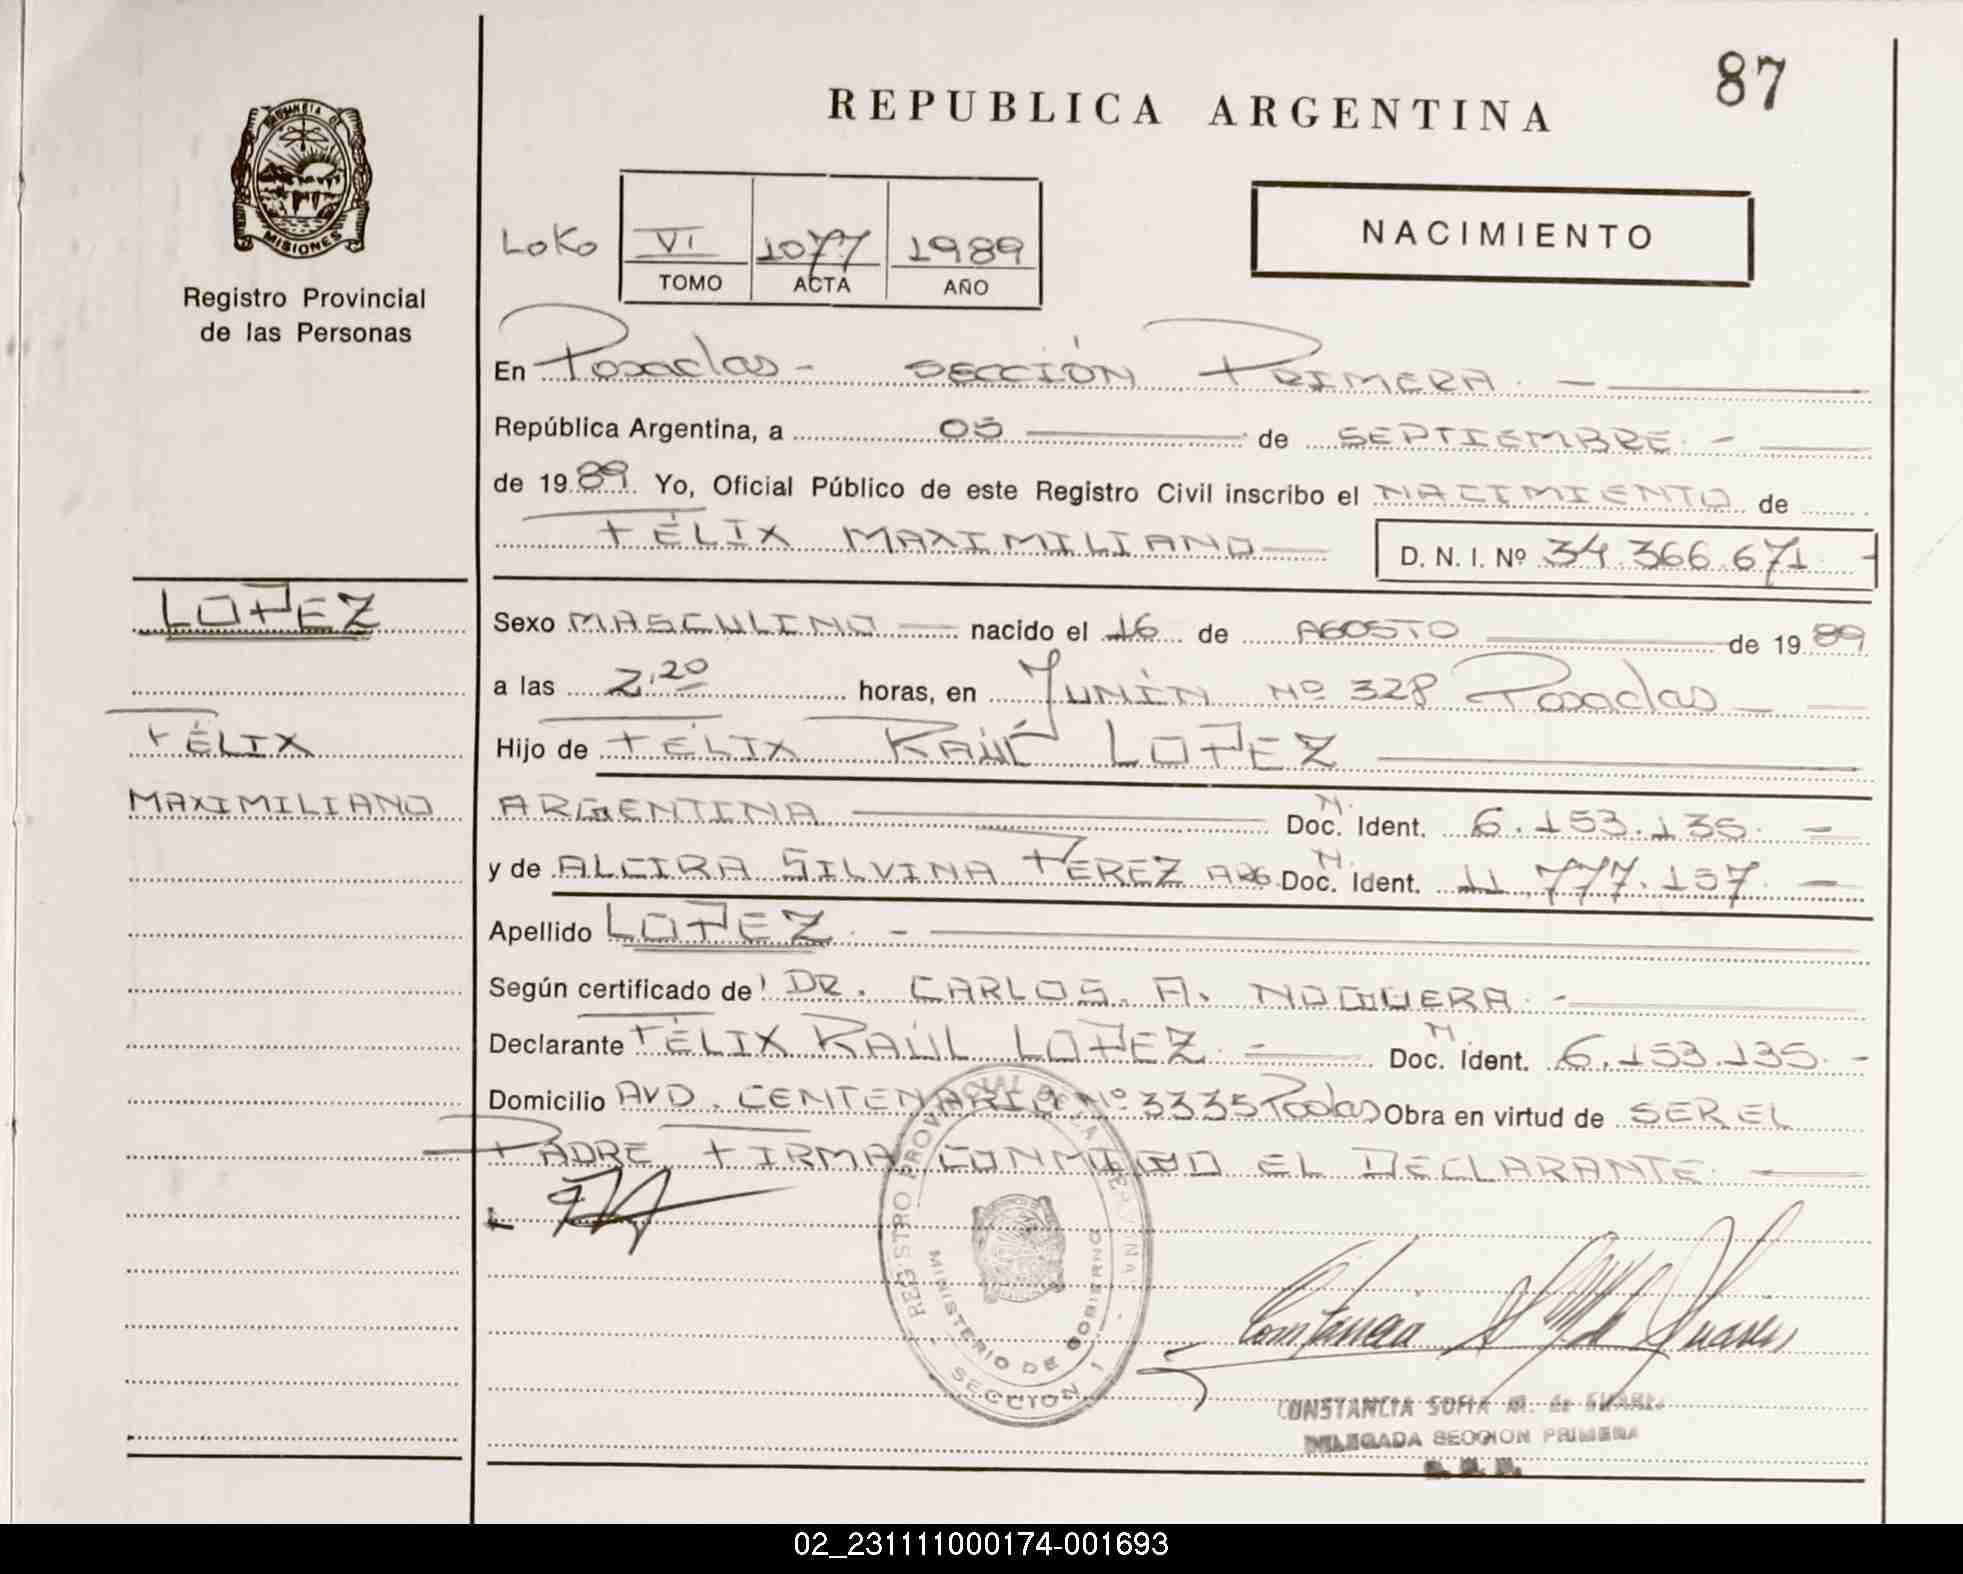 87
REPUBLICA ARGENTINA
PROVINCIA DE
MISIONES
Registro Provincial
de las Personas
LOKO
VI 1077 1989
TOMO ACTA AÑO
NACIMIENTO
En Posadas - SECCIÓN PRIMERA. -
República Argentina, a 05 de SEPTIEMBRE. -
de 1989. Yo, Oficial Público de este Registro Civil inscribo el NACIMIENTO de
FÉLIX MAXIMILIANO
D. N. I. Nº 34.366.671. -
LOPEZ
FÉLIX
MAXIMILIANO
Sexo MASCULINO nacido el 16 de AGOSTO de 1989
a las 2,20 horas, en JUNÍN Nº 328 Posadas -
Hijo de FÉLIX RAÚL LOPEZ
ARGENTINA Doc. N. Ident. 6.153.135. -
y de ALCIRA SILVINA PEREZ ARG. Doc. N. Ident. 11.777.157. -
Apellido LOPEZ. -
Según certificado de DR. CARLOS. A. NOGUERA. -
Declarante FÉLIX RAÚL LOPEZ. - Doc. N. Ident. 6.153.135. -
Domicilio AVD. CENTENARIO Nº 3335 Podas Obra en virtud de SER EL
PADRE FIRMA CONMIGO EL DECLARANTE.
REGISTRO PROVINCIAL DE LAS
MINISTERIO DE GOBIERNO
SECCION 1
CONSTANCIA SOFIA M. de
DELEGADA SECCION PRIMERA
02_231111000174-001693